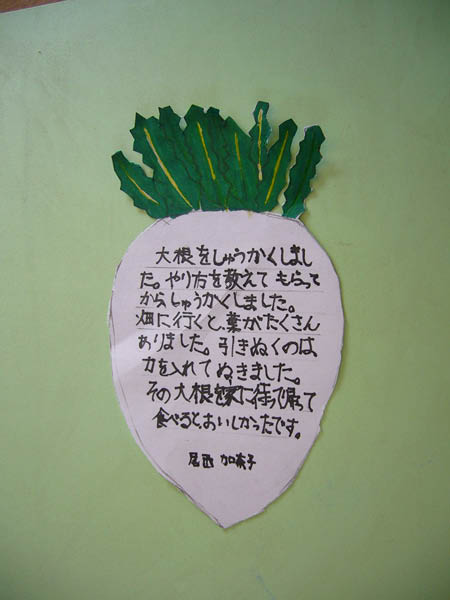 大根をしゅうかくしまし
た。やり方を教えてもらって
からしゅうかくしました。
畑に行くと、葉がたくさん
ありました。引きぬくのは
力を入れてぬきました。
その大根を家に持って帰って
食べるとおいしかったです。
尾西 加奈子